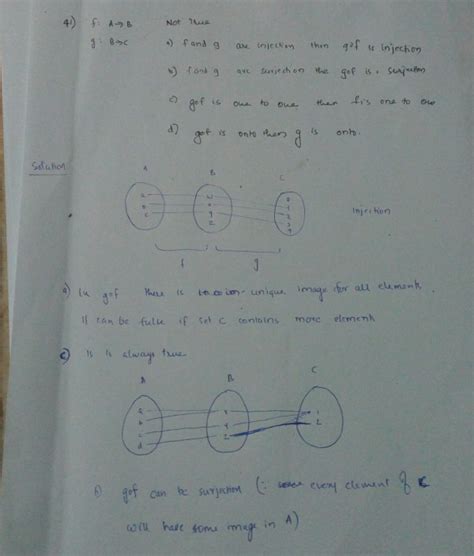 41) f: A→B Not True
g: B→C a) f and g are injection then gof is injection
b) f and g are surjection the gof is surjection
c) gof is one to one then f is one to one
d) gof is onto then g is onto.
Solution
A B C
injection
f g
a) In gof there is unique image for all element.
it can be false if set C contains more element
c) Is is always true
A B C
b) gof can be surjection (∵ every element of C
will have some image in A)